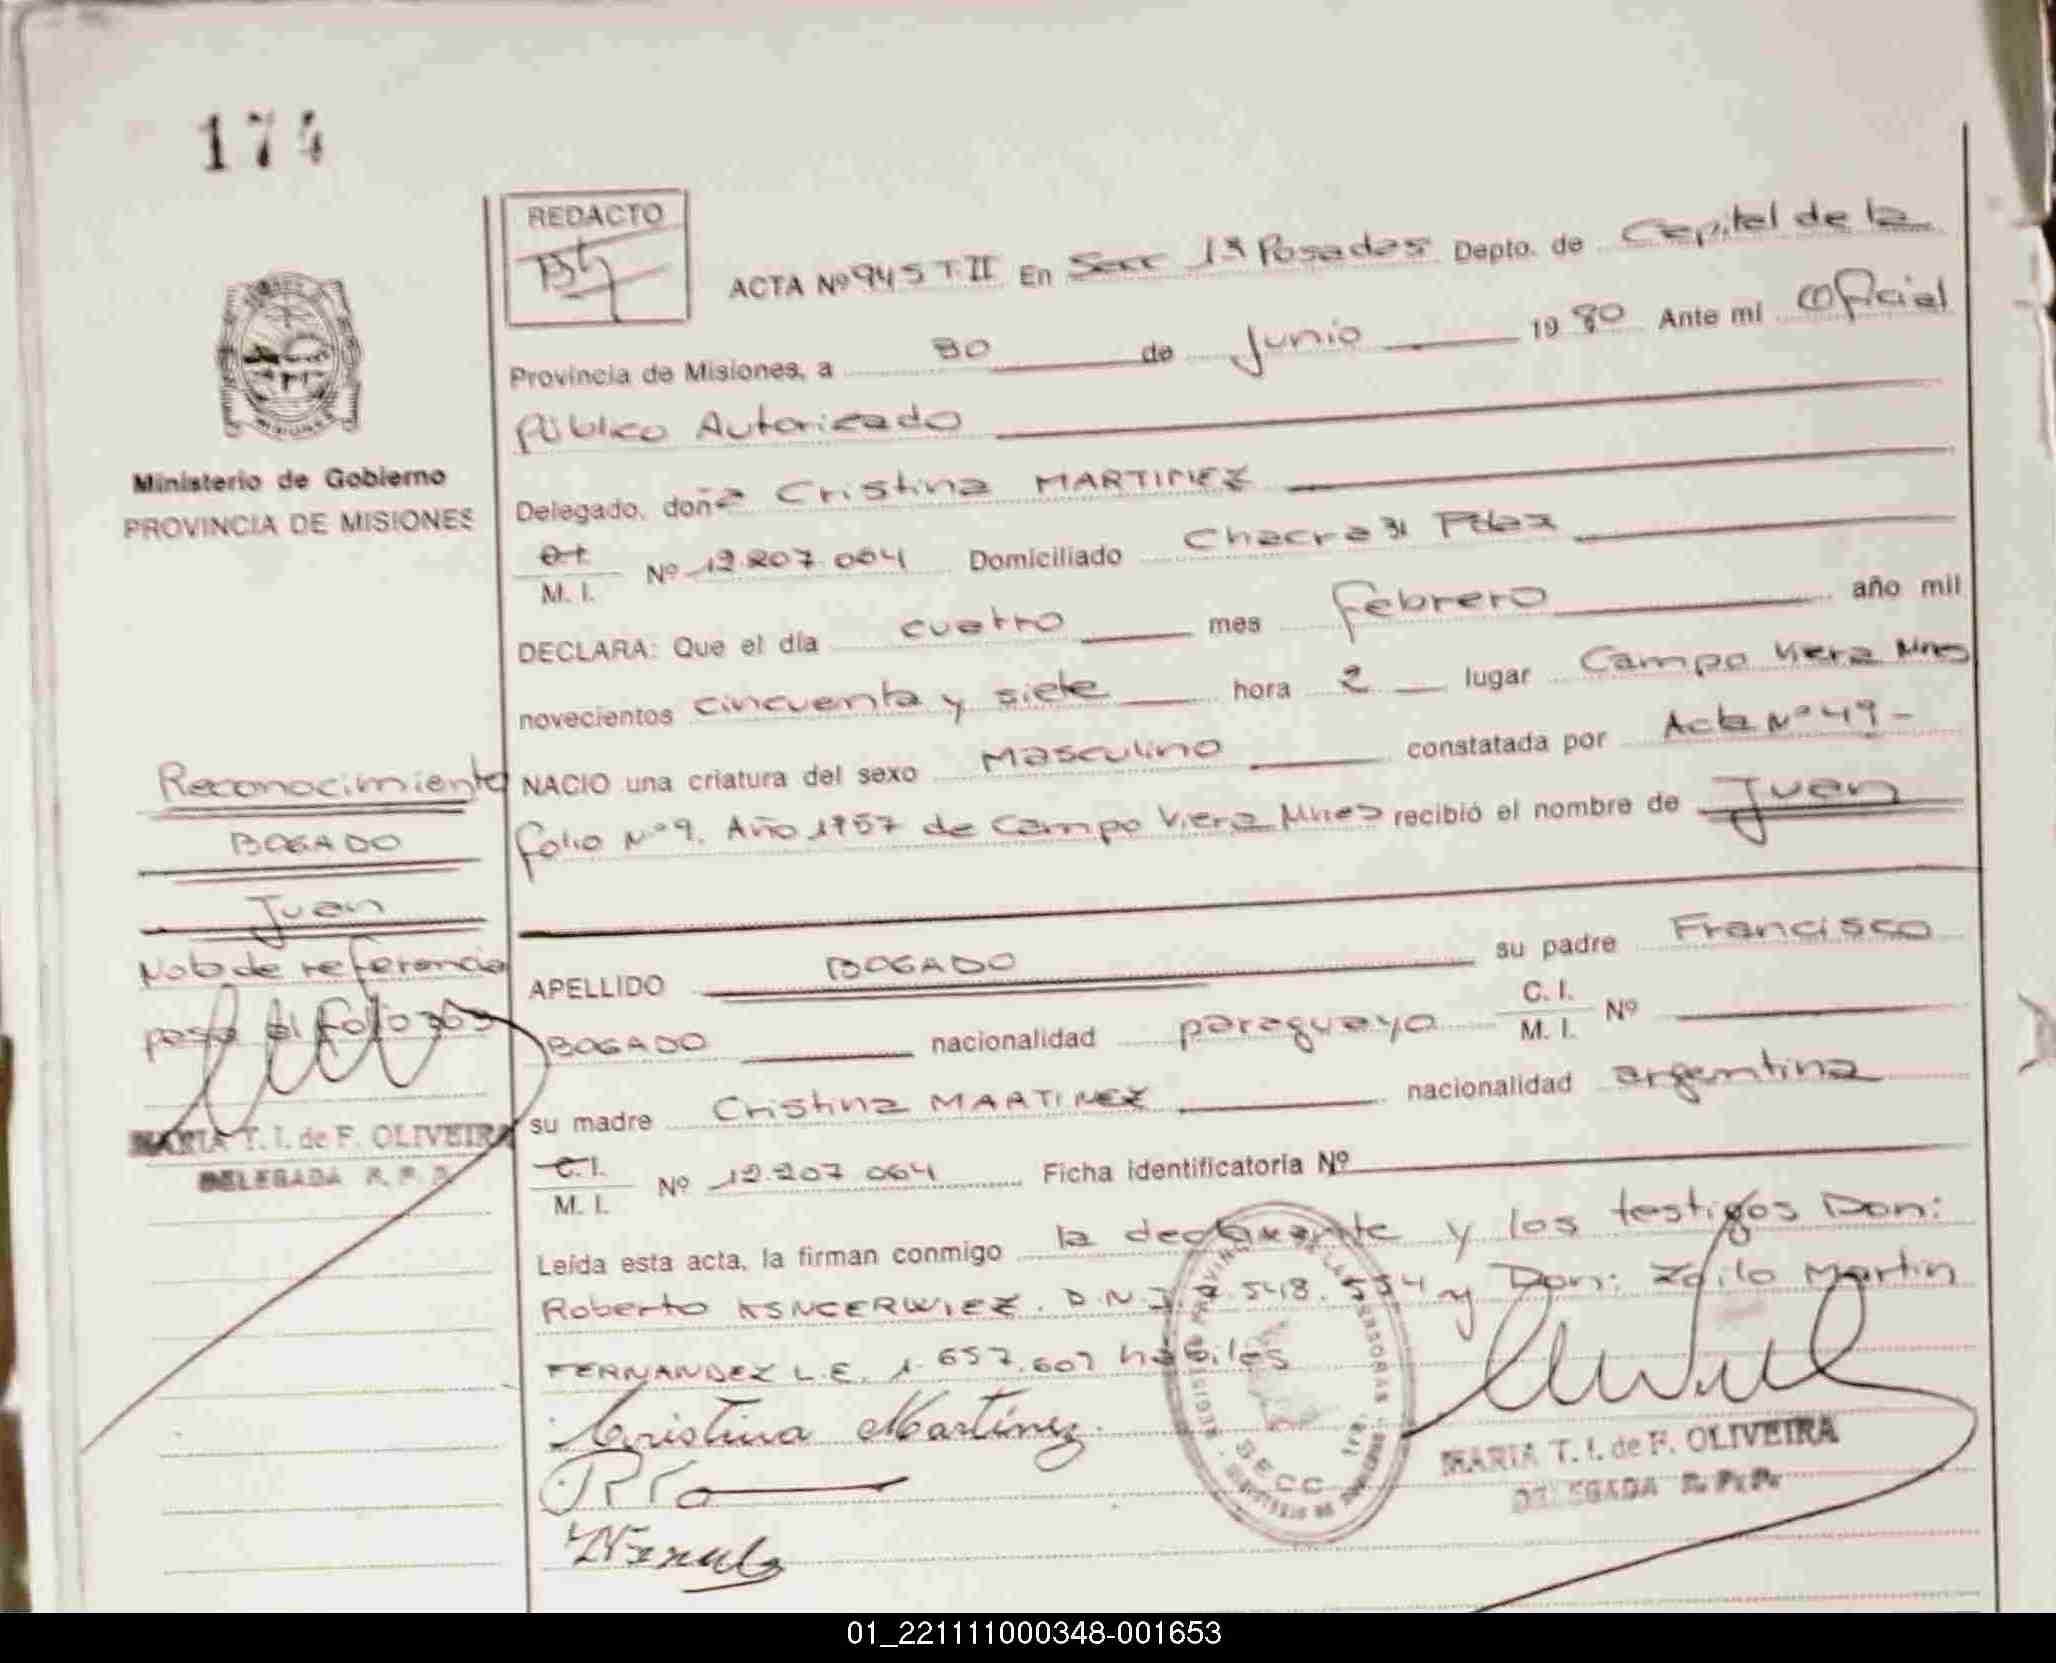 174
REDACTO
ACTA Nº 945 T.II En Secc 1ª Posadas Depto. de Capital de la
Provincia de Misiones, a 30 de Junio 1980 Ante mi Oficial
Público Autorizado
Ministerio de Gobierno
PROVINCIA DE MISIONES
Delegado, doña Cristina MARTINEZ
C.I.
M. I. Nº 12.207.064 Domiciliado Chacra 31
DECLARA: Que el día cuatro mes febrero año mil
novecientos cincuenta y siete hora 2 lugar Campo Viera Mnes
NACIO una criatura del sexo Masculino constatada por Acta Nº 49-
folio Nº 9. Año 1957 de Campo Viera Mnes recibió el nombre de Juan
Reconocimiento
BOGADO
Juan
Nota de referencia
pasa al folio
MARIA T. I. de F. OLIVEIRA
DELEGADA R. P. P.
APELLIDO BOGADO su padre Francisco
BOGADO nacionalidad paraguaya C. I.
M. I. Nº
su madre Cristina MARTINEZ nacionalidad argentina
C. I.
M. I. Nº 12.207.064 Ficha identificatoria Nº
Leída esta acta, la firman conmigo la declarante y los testigos Don:
Roberto D.N.I. 548.554 y Don: Zoilo Martin
FERNANDEZ L.E. 1.657.607 hábiles
Cristina Martínez.
SECC 1ra.
MARIA T. I. de F. OLIVEIRA
DELEGADA R. P. P.
01_221111000348-001653